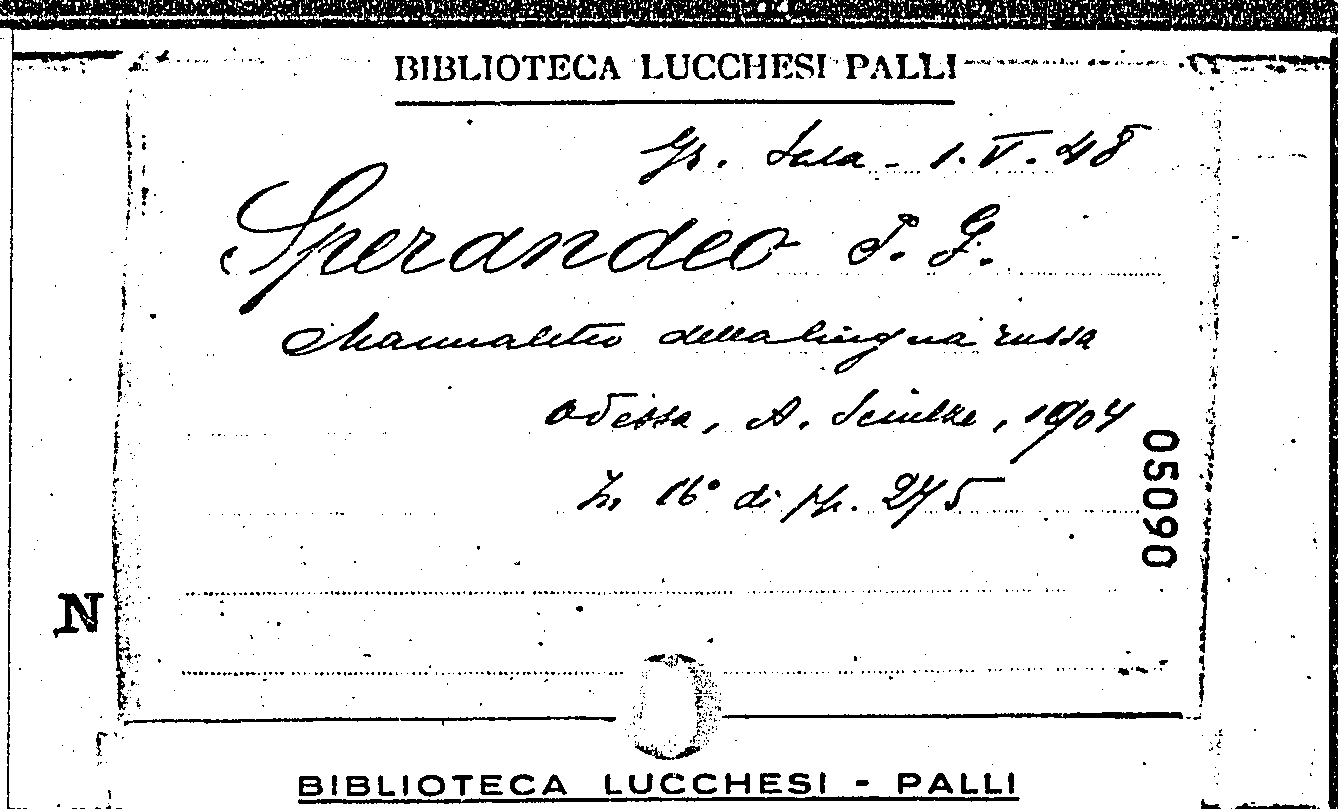 BIBLIOTECA LUCCHESI PALLI
Gr. Sala - 1. V. 48
Sperandeo P. G.
Manualetto della lingua russa
Odessa, A. Schultze, 1904
In 16° di pp. 275
05090
N
BIBLIOTECA LUCCHESI - PALLI